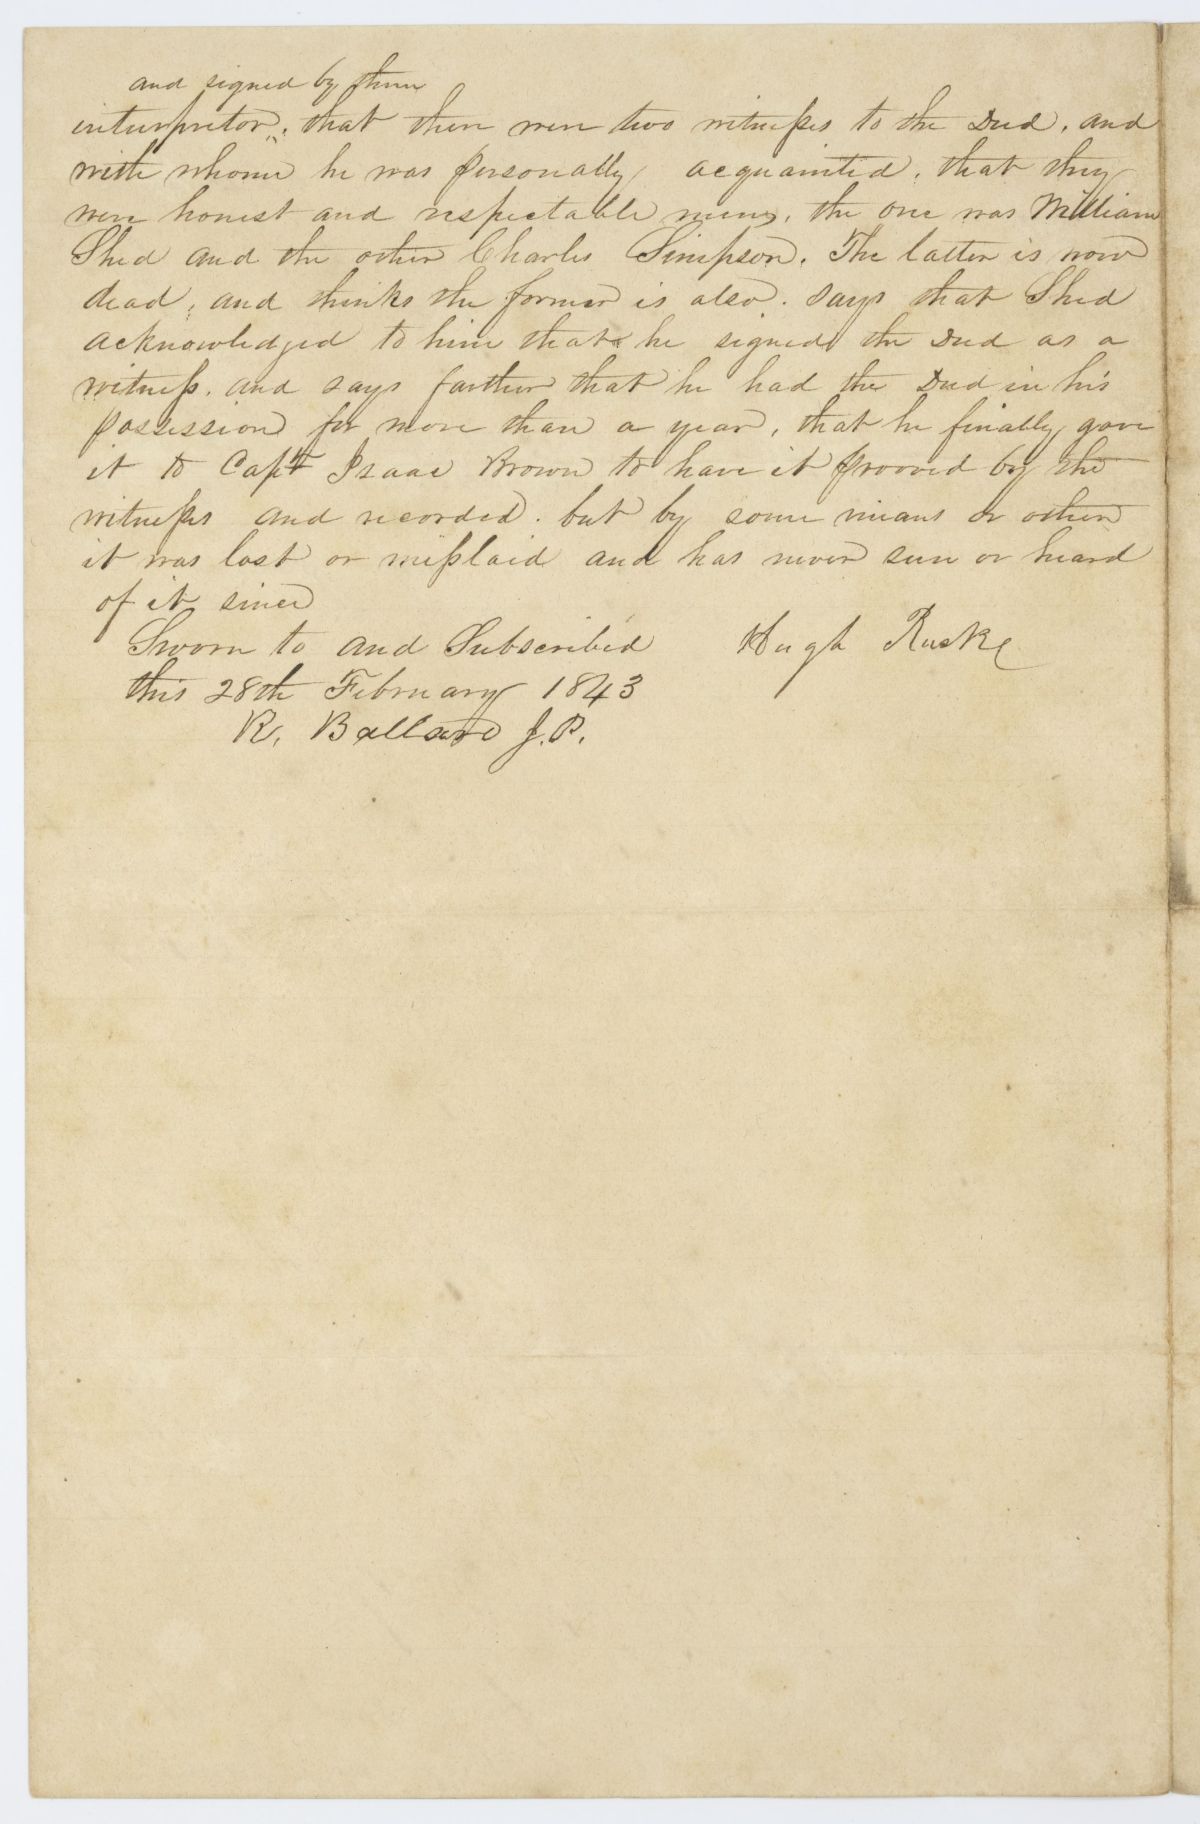 and signed by them
interpretor. that there were two witnesses to the Deed, and
with whome he was personally acquainted, that they
were honest and respectable mens, the one was William
Shed and the other Charles Simpson. The latter is now
dead, and thinks the former is also. says that Shed
acknowledged to him that he signed the Deed as a
witness. and says farther that he had the Deed in his
possession for more than a year, that he finally gave
it to Capt Isaac Brown to have it prooved by the
witnesses and recorded. but by some means or other
it was lost or misslaid and has never seen or heard
of it since
Sworn to and Subscribed Hugh
this 28th February 1843
R. Ballard J.P.